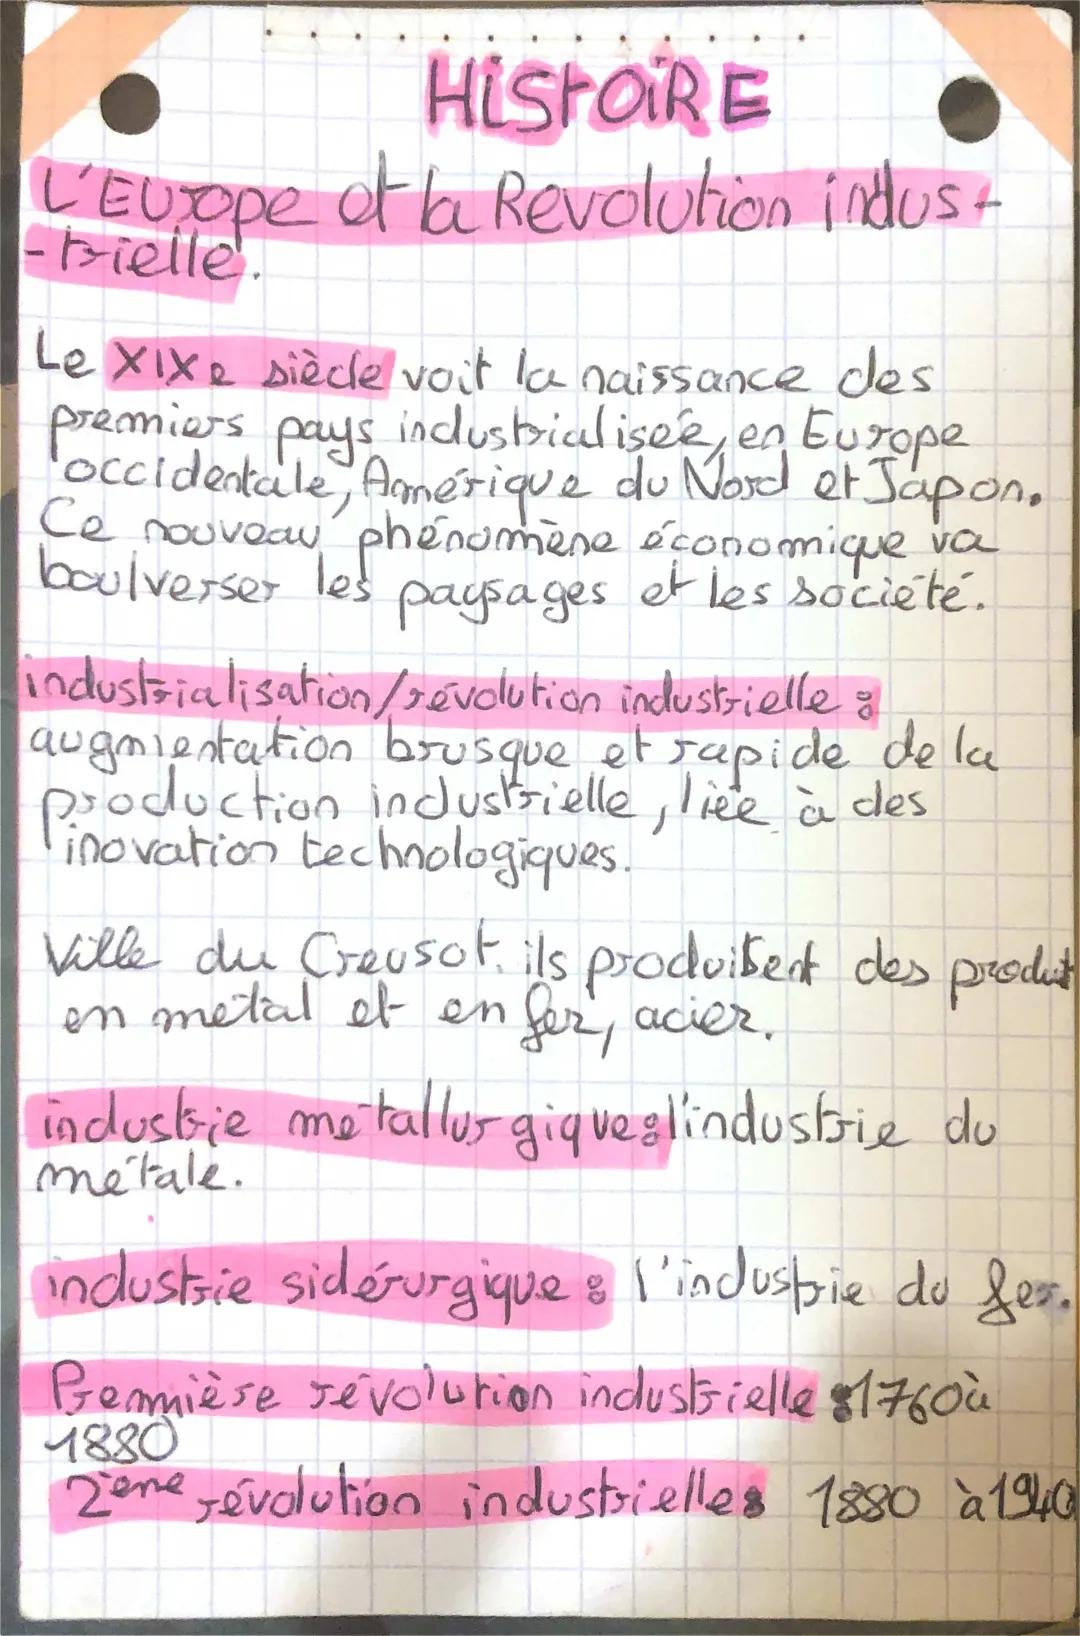 HISTOIRE
L'Europe et la Revolution indus-
-trielle.
Le XIXe siècle voit la naissance des
premiers pays industrialiseé, en Europe
occidentale, Amérique du Nord et Japon.
Ce nouveau phénomène économique va
boulverser les paysages et les société.
industrialisation/révolution industrielle :
augmentation brusque et rapide de la
production industrielle, liée à des
inovation technologiques.
Ville du Creusot. ils produisent des produit
en métal et en fer, acier.
industrie métallurgique : l'industrie du
métale.
industrie sidérurgique : l'industrie du fer.
Première révolution industrielle : 1760 à
1880
2ème révolution industrielle : 1880 à 1940